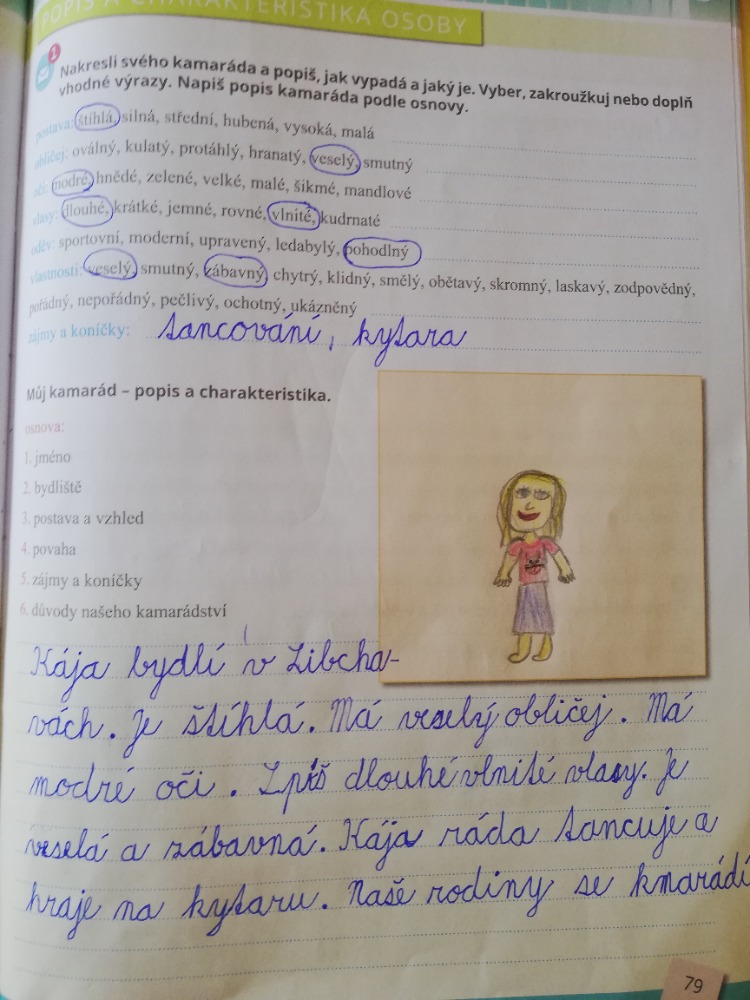 POPIS A CHARAKTERISTIKA OSOBY
1
Nakresli svého kamaráda a popiš, jak vypadá a jaký je. Vyber, zakroužkuj nebo doplň
vhodné výrazy. Napiš popis kamaráda podle osnovy.
postava: štíhlá, silná, střední, hubená, vysoká, malá
obličej: oválný, kulatý, protáhlý, hranatý, veselý, smutný
oči: modré, hnědé, zelené, velké, malé, šikmé, mandlové
vlasy: dlouhé, krátké, jemné, rovné, vlnité, kudrnaté
oděv: sportovní, moderní, upravený, ledabylý, pohodlný
vlastnosti: veselý, smutný, zábavný, chytrý, klidný, smělý, obětavý, skromný, laskavý, zodpovědný,
pořádný, nepořádný, pečlivý, ochotný, ukázněný
zájmy a koníčky: tancování, kytara
Můj kamarád – popis a charakteristika.
osnova:
1. jméno
2. bydliště
3. postava a vzhled
4. povaha
5. zájmy a koníčky
6. důvody našeho kamarádství
Kája bydlí v Libcha-
vách. Je štíhlá. Má veselý obličej. Má
modré oči. dlouhé vlnité vlasy. Je
veselá a zábavná. Kája ráda tancuje a
hraje na kytaru. Naše rodiny se kmarádí
79